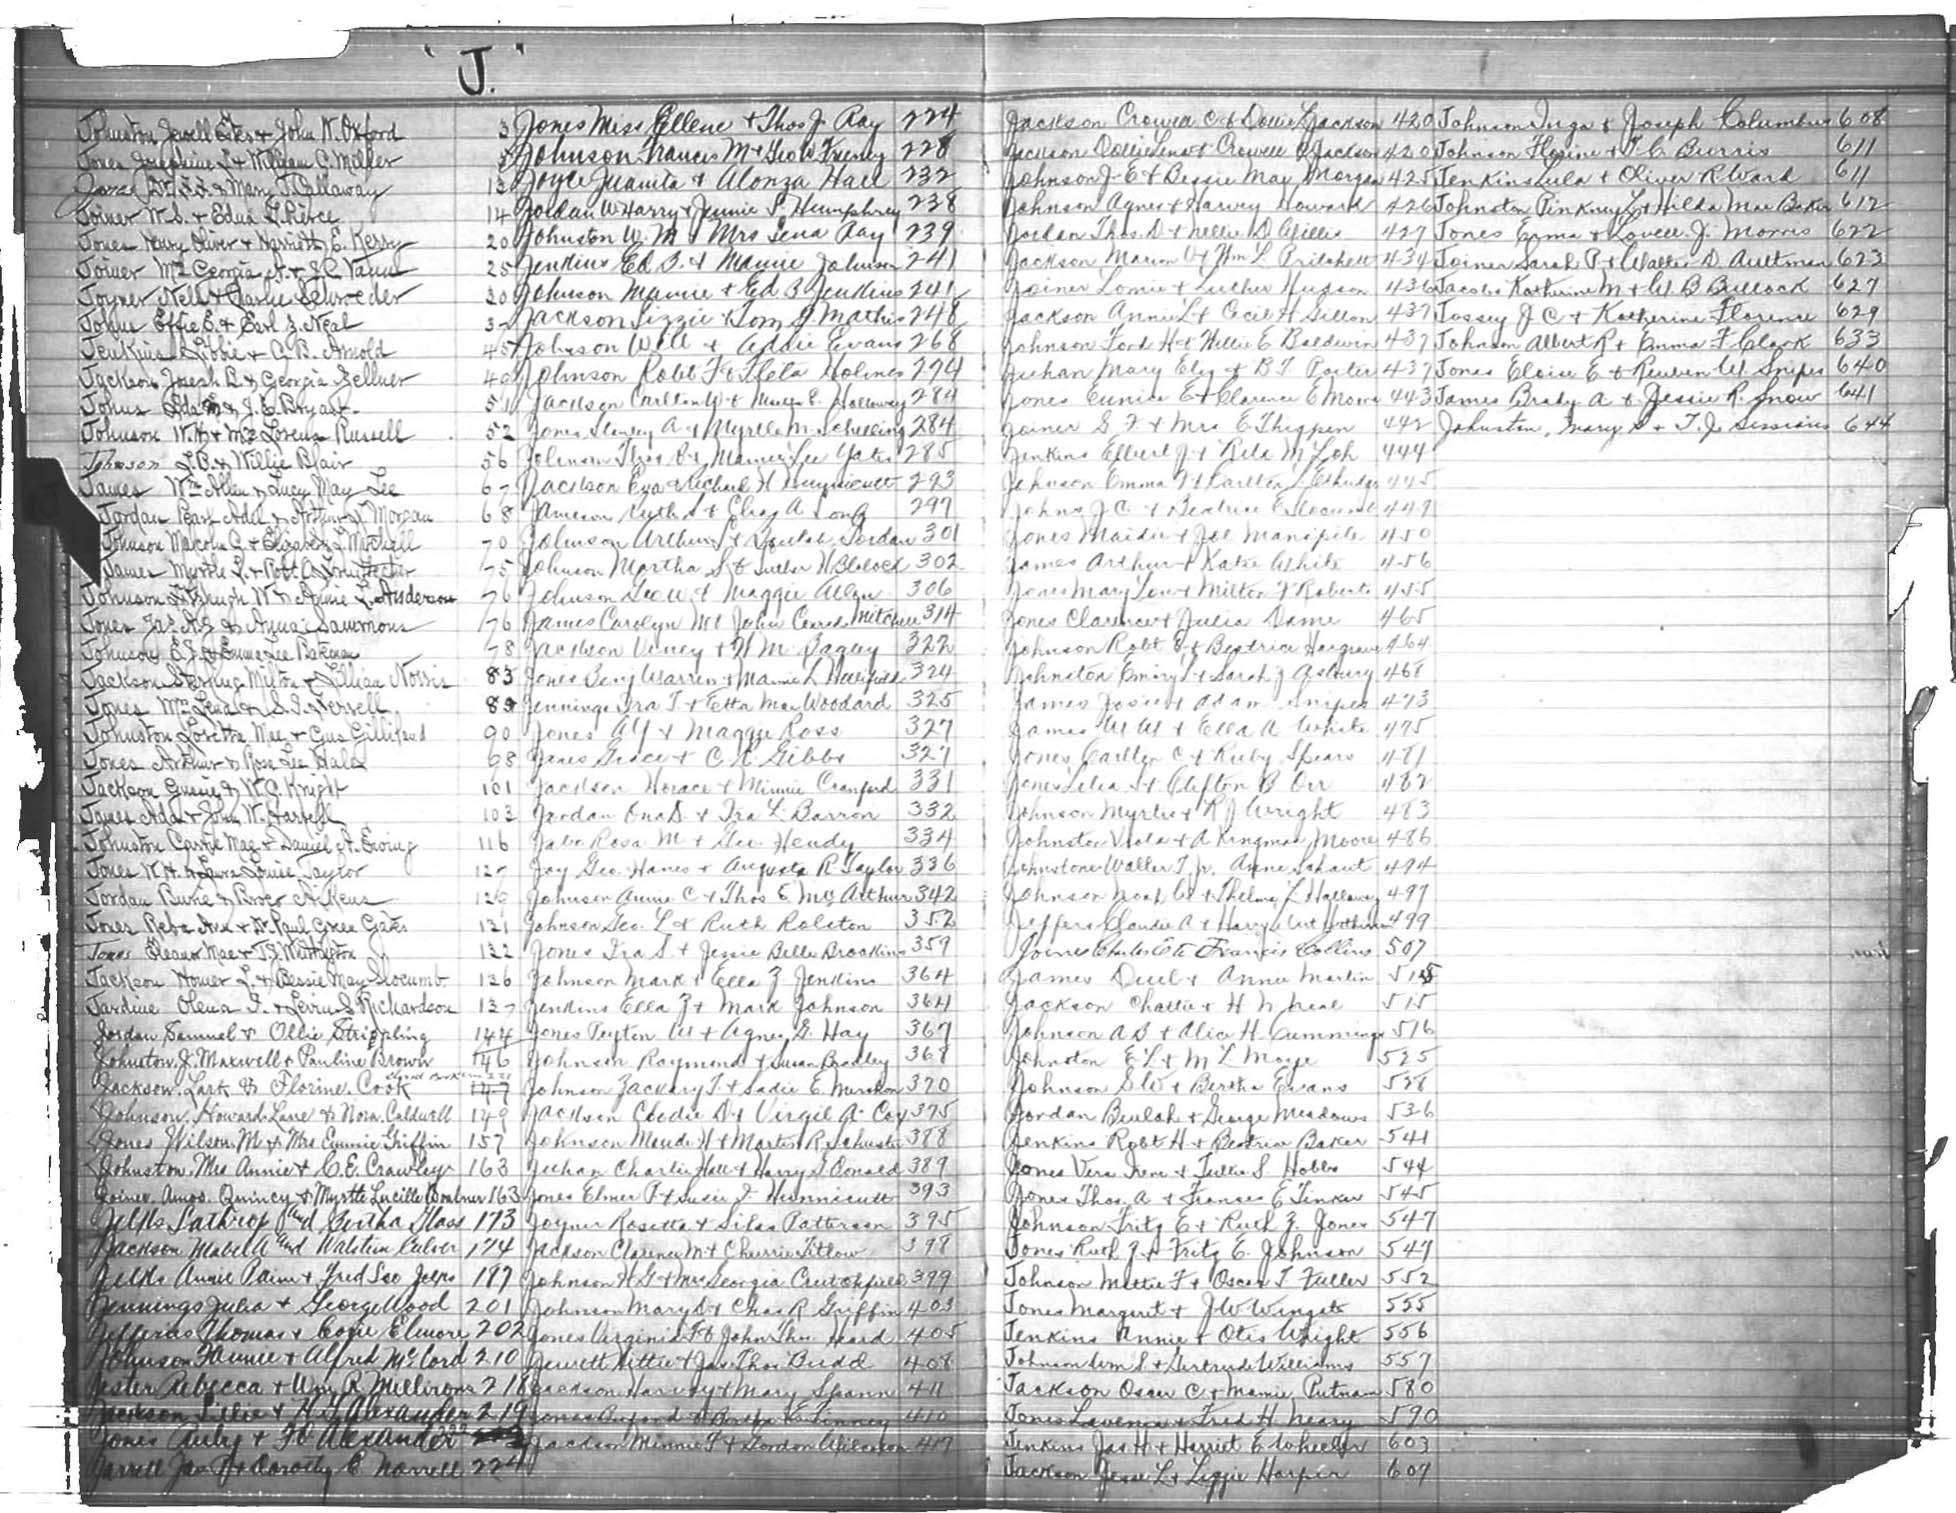 "J."
Johnston Jewell Estes & John N. Oxford 3
Jones Josephine S & William C. Miller
Jones Dr. & Mary J. Callaway 13
Joiner W.S. & Edna L. Pierce 14
Jones Henry Oliver & Harriett E. Kersey 20
Joiner Mrs Georgia A. & J.C. Vann 25
Joyner Nell & Charlie Schroeder 30
Johns Effie E. & Earl J. Neal
Jenkins Libbie & A.B. Arnold 45
Jackson Joseph B & Georgia Zellner 40
Johns Ida M & J.E. Bryant 51
Johnson W.H. & Mrs Lorena Russell 52
Johnson J.B. & Willie Blair 56
James Wm Allen & Lucy May Lee 67
Jordan Pearl Adel & Arthur Morgan 68
Johnson Malcolm G. & Elizabeth Mitchell 70
James Myrtle L. & Robt 75
Johnson Fitzhugh W & Annie L. Anderson 76
Jones Jas. A.J. & Anna Sammons 76
Johnson E.J. & Emma Lee Bateman 78
Jackson Sterling Milton & Lillian Norris 83
Jones Mrs Lena & S.I. Versell
Johnston Loretta Mae & Gus Gilliland 90
Jones Arthur & Rosa Lee Hale 98
Jackson Gussie & W.C. Knight 101
James Ada & John W. Harrell 103
Johnston Carrie Mae & Daniel A. Ewing 116
Jones W.H. & Laura Louise Taylor
Jordan & Aikens
Jones Reba Ann & Dr. Paul Green Gates 131
Jones Eleanor Mae & T.J. Whittington 132
Jackson Homer L. & Bessie May Slocumb 136
Jardine Olena I. & Levin S. Richardson 137
Jordan Samuel & Ollie Strippling 144
Johnston J. Maxwell & Pauline Brown 146
Jackson Lark & Florine Cook 147
Johnson Howard Lane & Nora Caldwell 149
Jones Wilson M & Mrs Emmie Griffin 157
Johnston Mrs Annie & C.E. Crawley 163
Joiner Amos Quincy & Myrtle Lucille Boatner 163
Jelks Lathrop P and Bertha Glass 173
Jackson Mabel A and Walstein Culver 174
Jelks Annie Paine & Fred Leo 187
Jennings Julia & George Wood 201
Jefferies Thomas & Elmore 202
Johnson Fannie & Alfred McCord 210
Jester Rebecca & Wm R Millirons 218
Jackson Lillie & H.Y. Alexander 219
Jones Ruby & Alexander
Jarrell Jas & Dorothy C Norrell 224
Jones Miss Ellene & Thos J. Ray 224
Johnson Francis M & Geo W Freeney 228
Joyce Juanita & Alonza Hall 232
Jordan W Harry & Jennie P. Humphrey 238
Johnston W. M & Mrs Lena Ray 239
Jenkins Ed B. & Mamie Johnson 241
Johnson Mamie & Ed B Jenkins 241
Jackson Lizzie & Tom J Mathis 248
Johnson Will & Addie Evans 268
Johnson Robt F & Holmes 274
Jackson Carlton W & E. Holloway 284
Jones Stanley A & Myrtle M. Schelling 284
Johnson Thos & Mamie Lee Yates 285
Jackson Eva & Richard H Hunnicutt 293
Jameson Ruth & Chas A Long 297
Johnson Arthur & Beulah Jordan 301
Johnson Martha S & Luther H Blalock 302
Johnson Geo W & Maggie Allen 306
James Carolyn M & John Conrad Mitchell 314
Jackson Viney & H M. Baguy 322
Jones Benj Warren & Mamie L Hollifield 324
Jennings Ira T & Etta Mae Woodard 325
Jones A Y & Maggie Ross 327
Jones Grace & C.R. Gibbs 327
Jackson Horace & Minnie Cranford 331
Jordan Ona & Ira L. Barron 332
Rosa M & Hendy 334
Joy Geo. Hanes & Augusta R Taylor 336
Johnson Annie C & Thos E. McArthur 342
Johnson Geo. L & Ruth Rolston 352
Jones Ira S. & Jessie Belle Brookins 359
Johnson Mark & Ella Z Jenkins 364
Jenkins Ella Z & Mark Johnson 364
Jones Peyton W & Agnes G. Hay 367
Johnson Raymond & Susan Bradley 368
Johnson Zackary T & Sadie E. Hershon 370
Jackson Clodie D & Virgil A. Coy 375
Johnson Maude H & Martin R Schuster 388
Jeehan Charlie Hall & Harry S Donald 389
Jones Elmer P & Susie J. Hunnicutt 393
Joyner Rosetta & Silas Patterson 395
Jackson Clarence M & Cherrie Titlow 398
Johnson H.G & Mrs Georgia Crutchfield 399
Johnson Mary D & Chas R Griffin 403
Jones Virginia F & John Thos. Heard 405
Jewett Hettie & Jas Thos Budd 408
Jackson Harvey & Mary Spann 411
Jones & Bertha E Finney 410
Jackson Minnie P & Gordon Wilkerson 417
Jackson Crowell C & Dollie L Jackson 420
Jackson Dollie Lena & Crowell C Jackson 420
Johnson J. E & Bessie Mae Morgan 425
Johnson Agnes & Harvey Howard 426
Jordan Thos. D & Nellie D Willis 427
Jackson Marion O & Wm L Pritchett 434
Joiner Lomie & Luther Hutson 436
Jackson Annie L & Cecil H. Gillon 437
Johnson Ford H & Willie E Baldwin 437
Jeehan Mary Eliz & B.T. Porter 437
Jones Eunice E & Clarence E Moore 443
Joiner G F & Mrs E Thigpen 442
Jenkins Elbert J & Rita M Loh 444
Johnson Emma F & Carlton L Ethridge 445
Johns J C & Beatrice E 449
Jones Maidie & Joe Manifile 450
James Arthur & Katie White 456
Jones Mary Lou & Milton F Roberts 455
Jones Clarence & Julia Dame 465
Johnson Robt E & Beatrice Hargrave 464
Johnston Emory L & Sarah J Asbury 468
James Josie & Adam Snipes 473
James W W & Ella A White 475
Jones Carlton C & Ruby Spears 481
Jones Lelia S & Clifton B Orr 482
Johnson Myrtis & R J Wright 483
Johnston Viola & A Kingman Moore 486
Johnstone Walter T. Jr. Anne Schaut 494
Johnson Noah W & Thelma L Hallaway 497
Jeffers Claudie A & Harry 499
Joines Charles E to Francis Collins 507
James Duel & Annie Martin 515
Jackson Chattie & H N Neal 515
Johnson A B & Alice H. Cummings 516
Johnston E L & M L Moye 525
Johnson S W & Bertha Evans 528
Jordan Beulah & George Meadows 536
Jenkins Robt H & Beatrice Baker 541
Jones Vera Irene & Tullie S Hobbs 544
Jones Thos. A & Frances E Tinker 545
Johnson Fritz E & Ruth J. Jones 547
Jones Ruth J & Fritz E. Johnson 547
Johnson Mattie F & Oscar T Fuller 552
Jones Margaret & J W Wingate 555
Jenkins Annie & Otis Wright 556
Johnson Wm S & Gertrude Williams 557
Jackson Oscar C & Mamie Putnam 580
Jones Lavenia & Fred H Neary 590
Jenkins Jas H & Harriet E Wheeler 603
Jackson Jesse L & Lizzie Harper 607
Johnson Inga & Joseph Columbus 608
Johnson Florine & T C Burris 611
Jenkins Lula & Oliver R Ward 611
Johnston Pinkney L & Hilda Mae Baker 612
Jones Erma & Lovell J. Morris 622
Joiner Sarah P & Walter D. Aultman 623
Jacobs Katherine M & W B Bullock 627
Jossey J C & Katherine Florence 629
Johnson Albert R & Emma F Clark 633
Jones Eloise E & Reuben W. Snipes 640
James Brady A & Jessie R. Snow 641
Johnston, Mary & T. J. Sessions 644